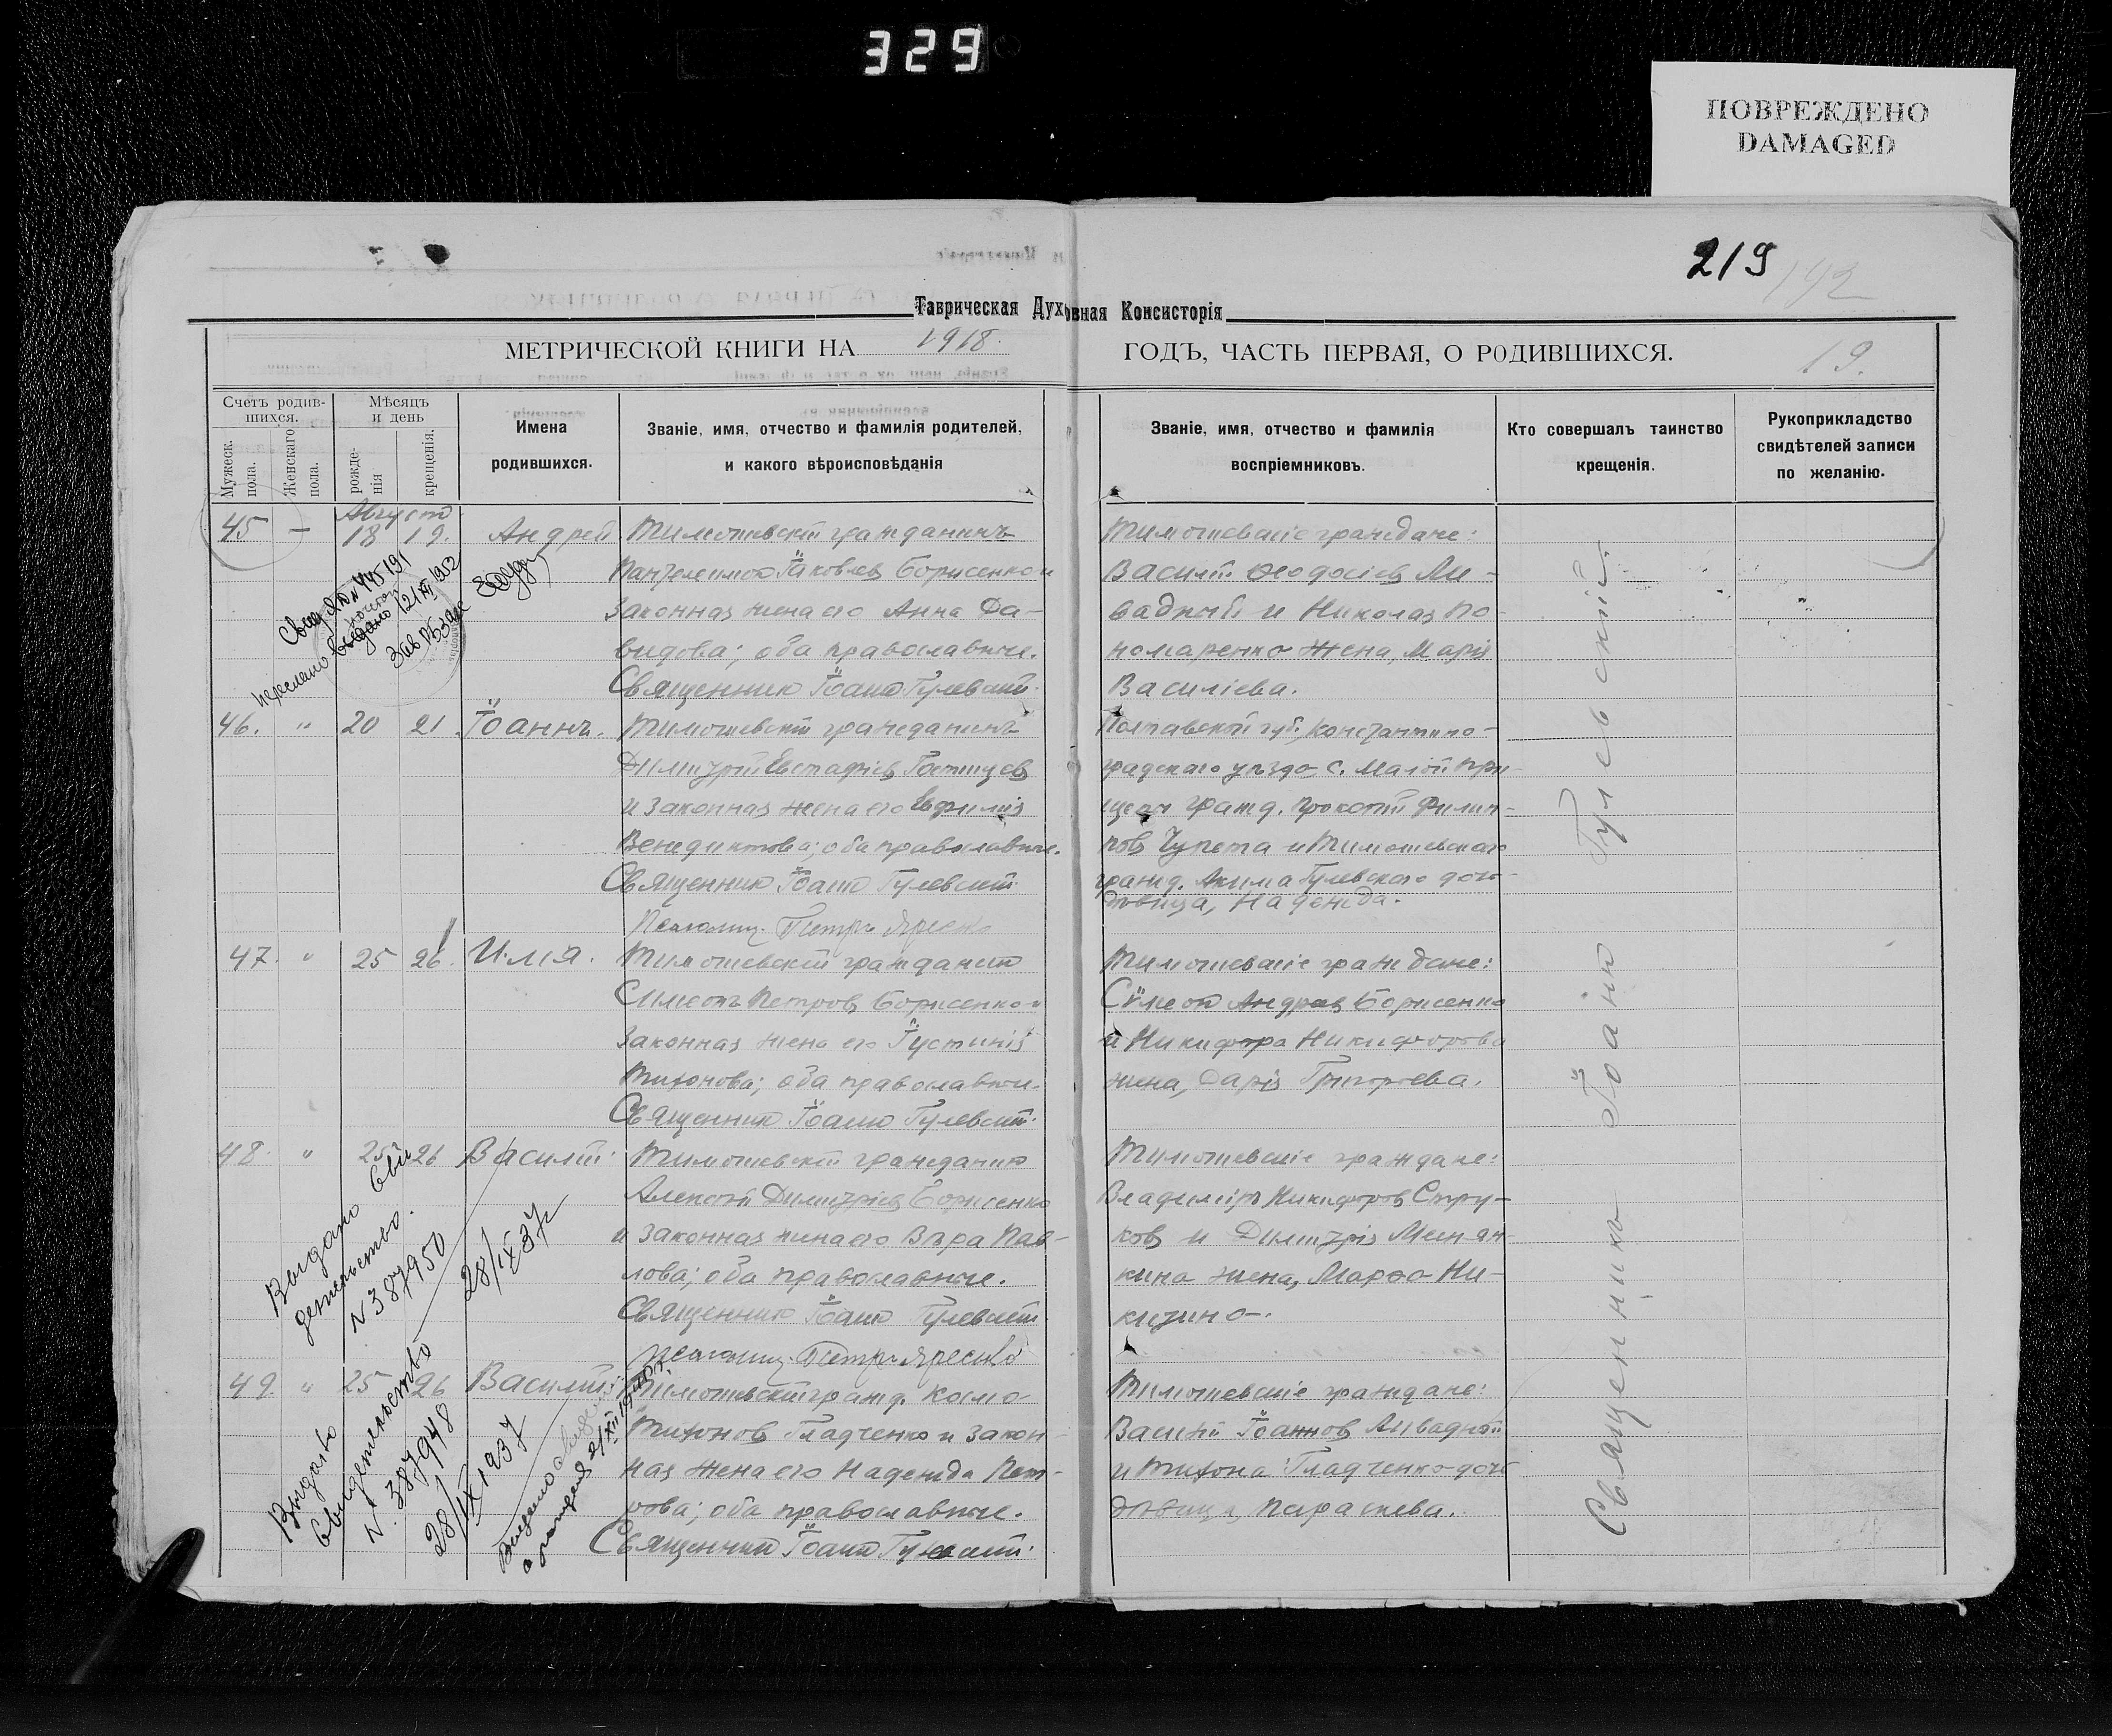 329
ПОВРЕЖДЕНО
DAMAGED
219
192
Таврическая Духовная Консисторія
МЕТРИЧЕСКОЙ КНИГИ НА 1918. ГОДЪ, ЧАСТЬ ПЕРВАЯ, О РОДИВШИХСЯ.
19.
Счетъ родив-
шихся.
Мужеск.
пола.
Женскаго
пола.
Мѣсяцъ
и день
рожде-
нія
крещенія.
Имена
родившихся.
Званіе, имя, отчество и фамилія родителей,
и какого вѣроисповѣданія
Званіе, имя, отчество и фамилія
воспріемниковъ.
Кто совершалъ таинство
крещенія.
Рукоприкладство
свидѣтелей записи
по желанію.
Август
45 — 18 19. Андрей
Тимошевскій гражданинъ
Яковлев Борисенко и
Законная жена его Анна Да-
видова; оба православные.
Священник Іоанн Гулевский.
Тимошевскіе граждане:
Василій Ѳеодосіев Ли-
вадный и Николая По-
номаренко жена, Марія
Василіева.
выдано 12/XII 1952
46. " 20 21. Іоаннъ.
Тимошевскій гражданинъ
Димитрій Евстафіев
и законная жена его Евфимія
Венедиктова; оба православные.
Священник Іоанн Гулевский.
Псаломщ. Петръ Яреско
Полтавской губ., Константино-
градскаго уѣзда, с. Малой
гражд. Филип-
пов Чупета и Тимошевскаго
гражд. Акима Гулевского дочь
девица, Надежда.
47. " 25 26. Илія.
Тимошевскій гражданин
Симеонъ Петров Борисенко и
законная жена его Іустинія
Тихонова; оба православные.
Священник Іоанн Гулевский.
Тимошевскіе граждане:
Сѵмеон Андреев Борисенко
и Никифора Никифорова
жена, Дарія Григорьева.
48. " 25 26 Василій.
Тимошевскій гражданин
Алексій Димитріев Борисенко
и законная жена его Вѣра Пав-
лова; оба православные.
Священник Іоанн Гулевский
Псаломщ. Петръ Яреско
Тимошевскіе граждане:
Владиміръ Никифоров Стру-
ков и Димитрія
кина жена, Марфа Ни-
Выдано Сви
детельство.
N 387950
28/IX 37 г
49. " 25 26 Василій
Тимошевский гражд. Косма
Тихонов Гладченко и закон-
ная жена его Надежда Пет-
рова; оба православные.
Священник Іоанн Гулевский.
Тимошевскіе граждане:
Василій Іоаннов Ливадный
и Тихона Гладченко дочь
девица, Параскева.
Выдано
Свидетельство
N. 387948
28/IX 1937
Священникъ Іоаннъ Гулевскій.